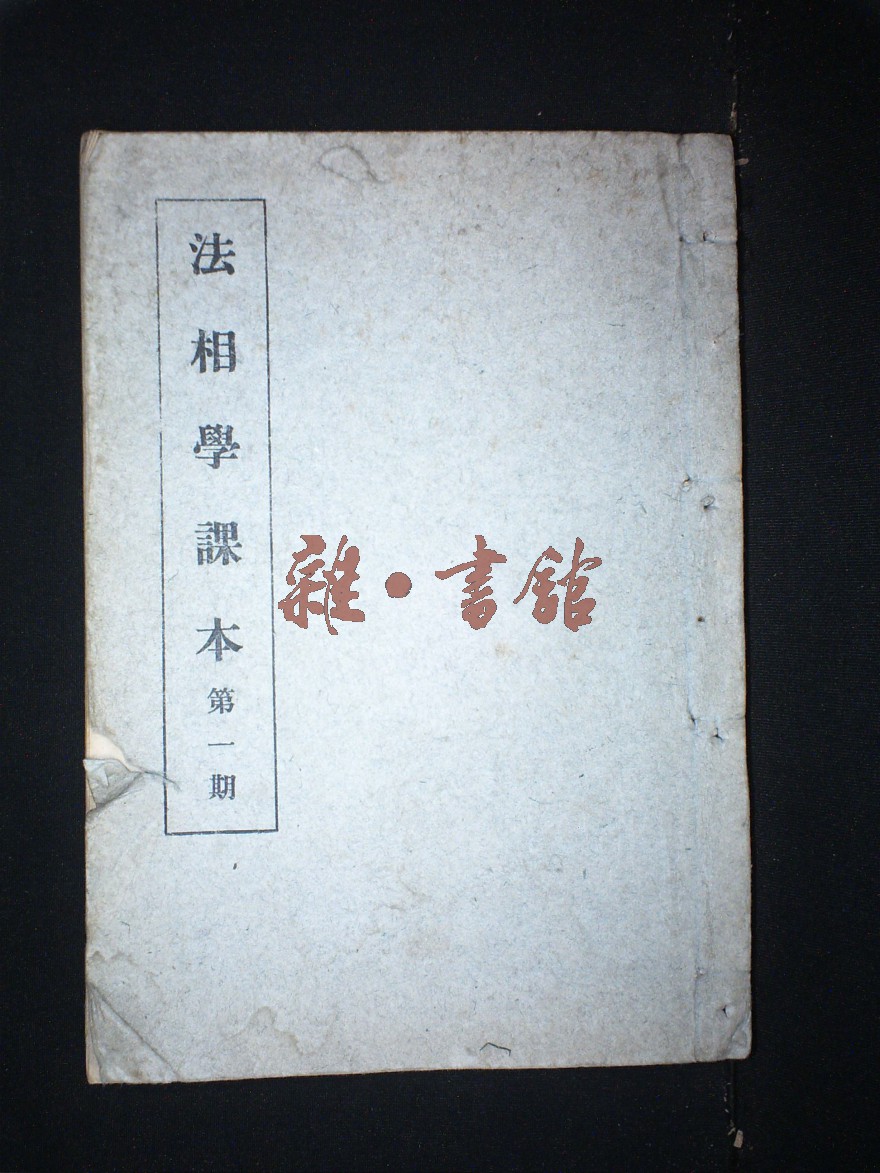 法相學課本第一期
雜·書館